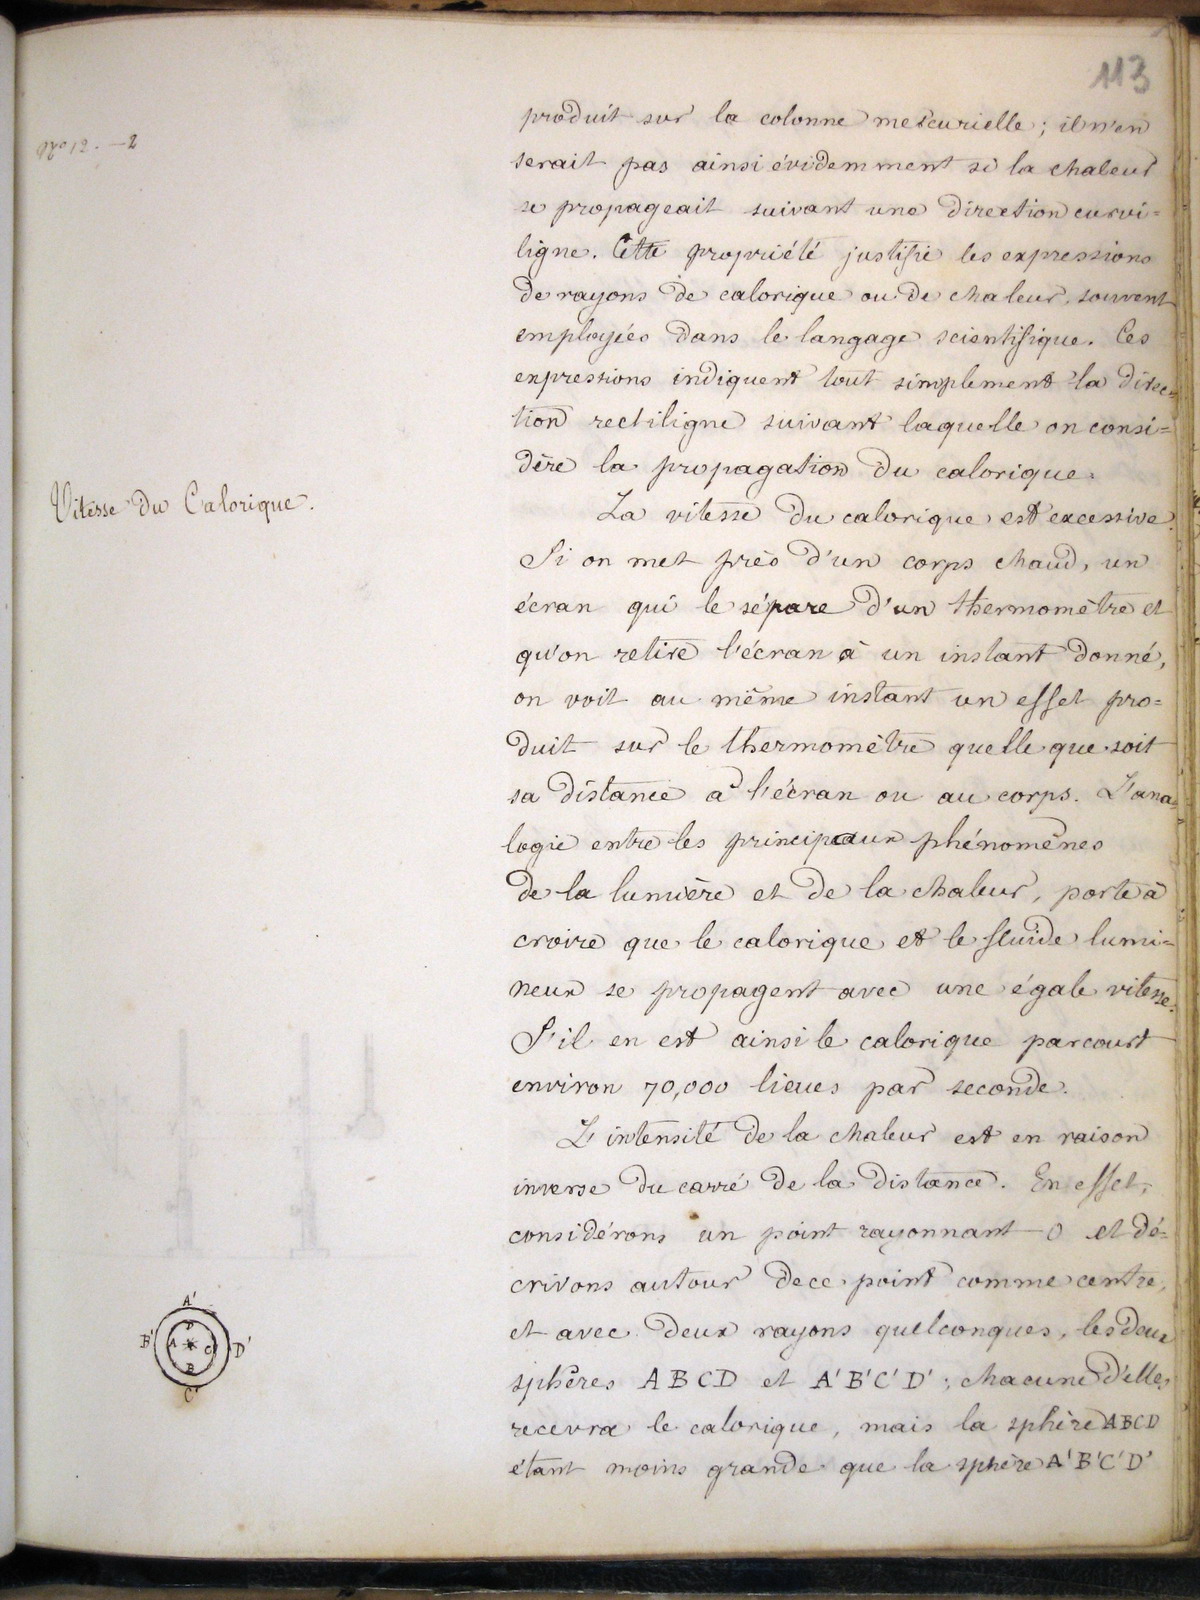 113
produit sur la colonne mercurielle ; il n'en
N° 12. — 2
serait pas ainsi évidemment si la chaleur
se propageait suivant une direction curvi=
ligne. Cette propriété justifie les expressions
de rayons de calorique ou de chaleur, souvent
employées dans le langage scientifique. Ces
expressions indiquent tout simplement la direc=
tion rectiligne suivant laquelle on consi=
dère la propagation du calorique.
Vitesse du Calorique.
La vitesse du calorique est excessive.
Si on met près d'un corps chaud, un
écran qui le sépare d'un thermomètre et
qu'on retire l'écran à un instant donné,
on voit au même instant un effet pro=
duit sur le thermomètre quelle que soit
sa distance à l'écran ou au corps. L'ana=
logie entre les principaux phénomènes
de la lumière et de la chaleur, porte à
croire que le calorique et le fluide lumi=
neux se propagent avec une égale vitesse.
S'il en est ainsi le calorique parcourt
environ 70,000 lieues par seconde.
L'intensité de la chaleur est en raison
inverse du carré de la distance. En effet,
considérons un point rayonnant O et dé=
crivons autour de ce point comme centre,
et avec deux rayons quelconques, les deux
sphères ABCD et A'B'C'D' ; chacune d'elles
recevra le calorique, mais la sphère ABCD
étant moins grande que la sphère A'B'C'D'
A'
D
B' A C D'
B
C'